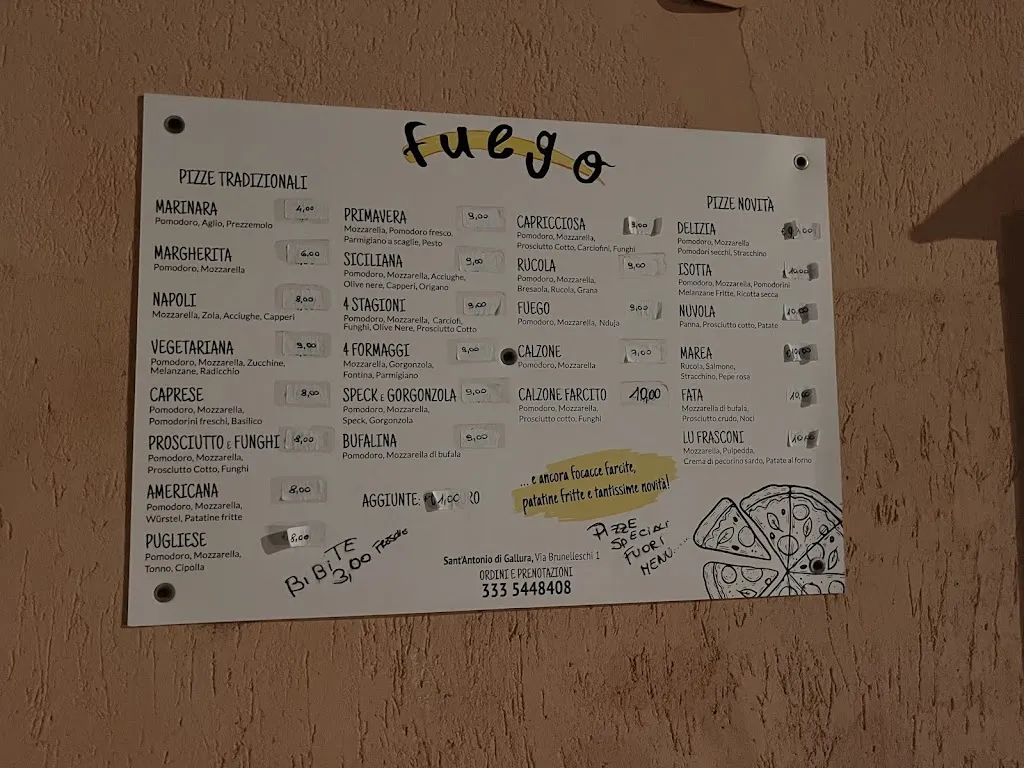 fuego
PIZZE TRADIZIONALI
MARINARA 4,00
Pomodoro, Aglio, Prezzemolo
MARGHERITA 6,00
Pomodoro, Mozzarella
NAPOLI 8,00
Mozzarella, Zola, Acciughe, Capperi
VEGETARIANA 9,00
Pomodoro, Mozzarella, Zucchine,
Melanzane, Radicchio
CAPRESE 8,00
Pomodoro, Mozzarella,
Pomodorini freschi, Basilico
PROSCIUTTO E FUNGHI 8,00
Pomodoro, Mozzarella,
Prosciutto Cotto, Funghi
AMERICANA 8,00
Pomodoro, Mozzarella,
Würstel, Patatine fritte
PUGLIESE 8,00
Pomodoro, Mozzarella,
Tonno, Cipolla
PRIMAVERA 9,00
Mozzarella, Pomodoro fresco,
Parmigiano a scaglie, Pesto
SICILIANA 9,00
Pomodoro, Mozzarella, Acciughe,
Olive nere, Capperi, Origano
4 STAGIONI 9,00
Pomodoro, Mozzarella, Carciofi,
Funghi, Olive Nere, Prosciutto Cotto
4 FORMAGGI 9,00
Mozzarella, Gorgonzola,
Fontina, Parmigiano
SPECK E GORGONZOLA 9,00
Pomodoro, Mozzarella,
Speck, Gorgonzola
BUFALINA 9,00
Pomodoro, Mozzarella di bufala
AGGIUNTE: 1,00
BIBITE
3,00 FRESCHE
CAPRICCIOSA 9,00
Pomodoro, Mozzarella,
Prosciutto Cotto, Carciofini, Funghi
RUCOLA 9,00
Pomodoro, Mozzarella,
Bresaola, Rucola, Grana
FUEGO 9,00
Pomodoro, Mozzarella, Nduja
CALZONE 7,00
Pomodoro, Mozzarella
CALZONE FARCITO 10,00
Pomodoro, Mozzarella,
Prosciutto cotto, Funghi
... e ancora focacce farcite,
patatine fritte e tantissime novità!
PIZZE
SPECIALI
FUORI
MENU.....
Sant'Antonio di Gallura, Via Brunelleschi 1
ORDINI E PRENOTAZIONI
333 5448408
PIZZE NOVITÀ
DELIZIA
Pomodoro, Mozzarella
Pomodori secchi, Stracchino
ISOTTA 10,00
Pomodoro, Mozzarella, Pomodorini
Melanzane Fritte, Ricotta secca
NUVOLA 10,00
Panna, Prosciutto cotto, Patate
MAREA
Rucola, Salmone,
Stracchino, Pepe rosa
FATA 10,00
Mozzarella di bufala,
Prosciutto crudo, Noci
LU FRASCONI 10,00
Mozzarella, Pulpedda,
Crema di pecorino sardo, Patate al forno